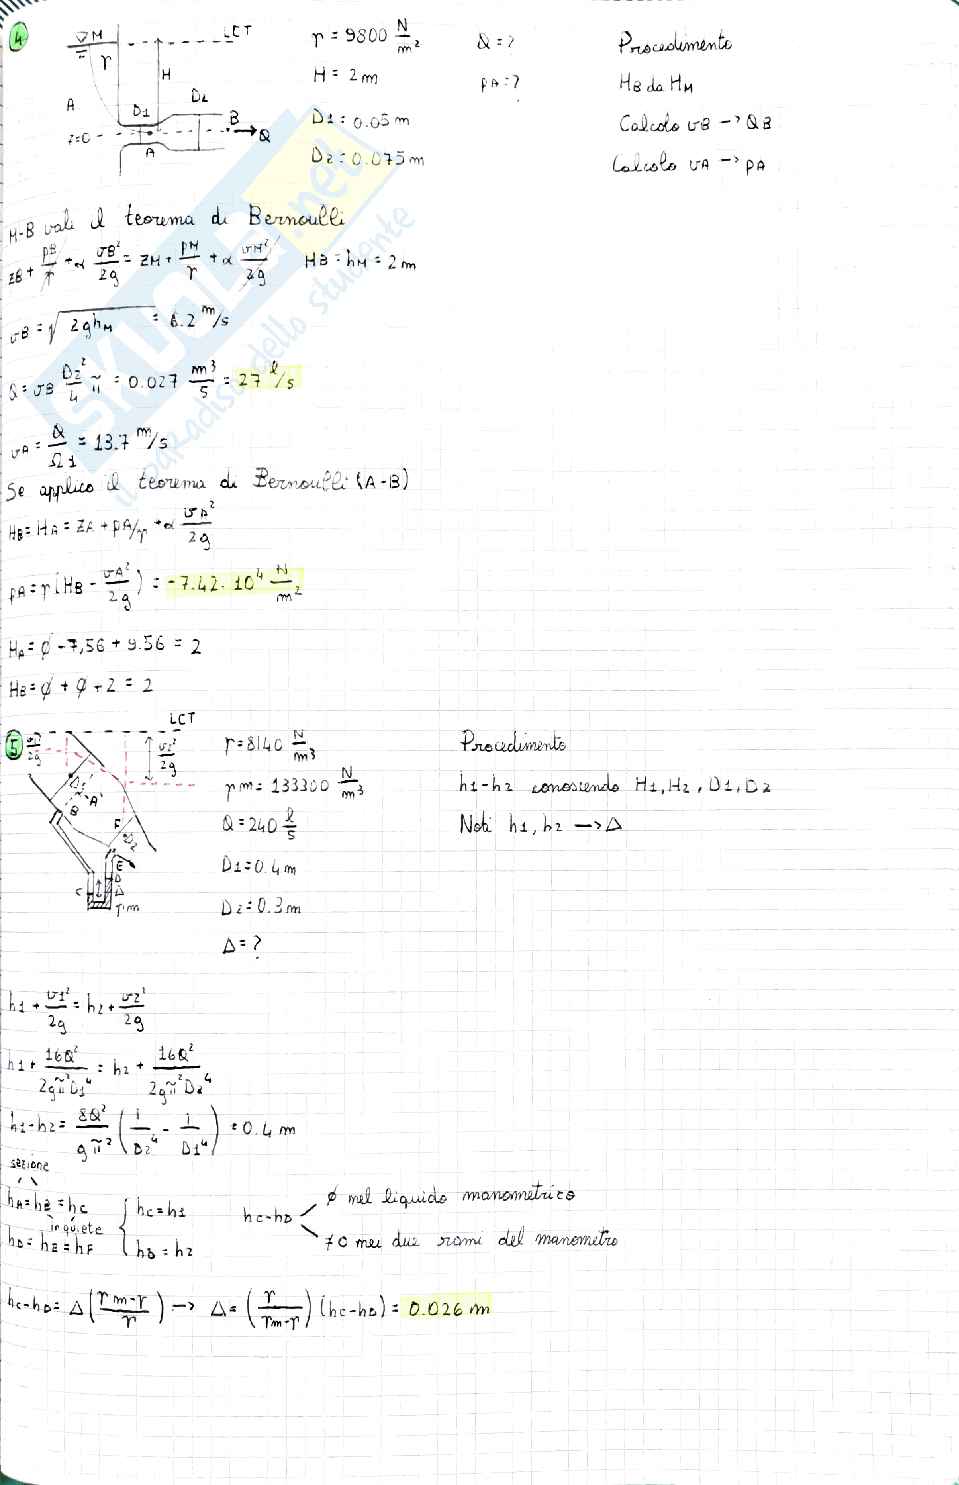 4
M LCT
γ
H
A D1 D2
z=0 B Q
A
γ = 9800 N/m²
H = 2m
D1 = 0.05 m
D2 = 0.075 m
Q = ?
pA = ?
Procedimento
HB da HM
Calcolo vB → QB
Calcolo vA → pA
M-B vale il teorema di Bernoulli
zB + pB/γ + α vB²/2g = zM + pM/γ + α vM²/2g HB = hM = 2m
vB = √2ghM = 6.2 m/s
Q = vB D2²/4 π = 0.027 m³/s = 27 l/s
vA = Q/Ω1 = 13.7 m/s
Se applico il teorema di Bernoulli (A-B)
HB = HA = zA + pA/γ + α vA²/2g
pA = γ (HB - vA²/2g) = -7.42 · 10⁴ N/m²
HA = ø - 7,56 + 9.56 = 2
HB = ø + ø + 2 = 2
SKUOLA.net
il paradiso dello studente
5
LCT
v1²/2g v2²/2g
D1 A
B
F
D2
E
C D
Δ
γm
γ = 8140 N/m³
γm = 133300 N/m³
Q = 240 l/s
D1 = 0.4 m
D2 = 0.3 m
Δ = ?
Procedimento
h1-h2 conoscendo H1, H2, D1, D2
Noti h1, h2 → Δ
h1 + v1²/2g = h2 + v2²/2g
h1 + 16Q²/2gπ²D1⁴ = h2 + 16Q²/2gπ²D2⁴
h1-h2 = 8Q²/gπ² (1/D2⁴ - 1/D1⁴) = 0.4 m
sezione
hA = hB = hC
in quiete
hD = hE = hF
hC = h1
hD = h2
hC-hD
ø nel liquido manometrico
≠0 nei due rami del manometro
hC-hD = Δ (γm-γ/γ) → Δ = (γ/γm-γ) (hC-hD) = 0.026 m